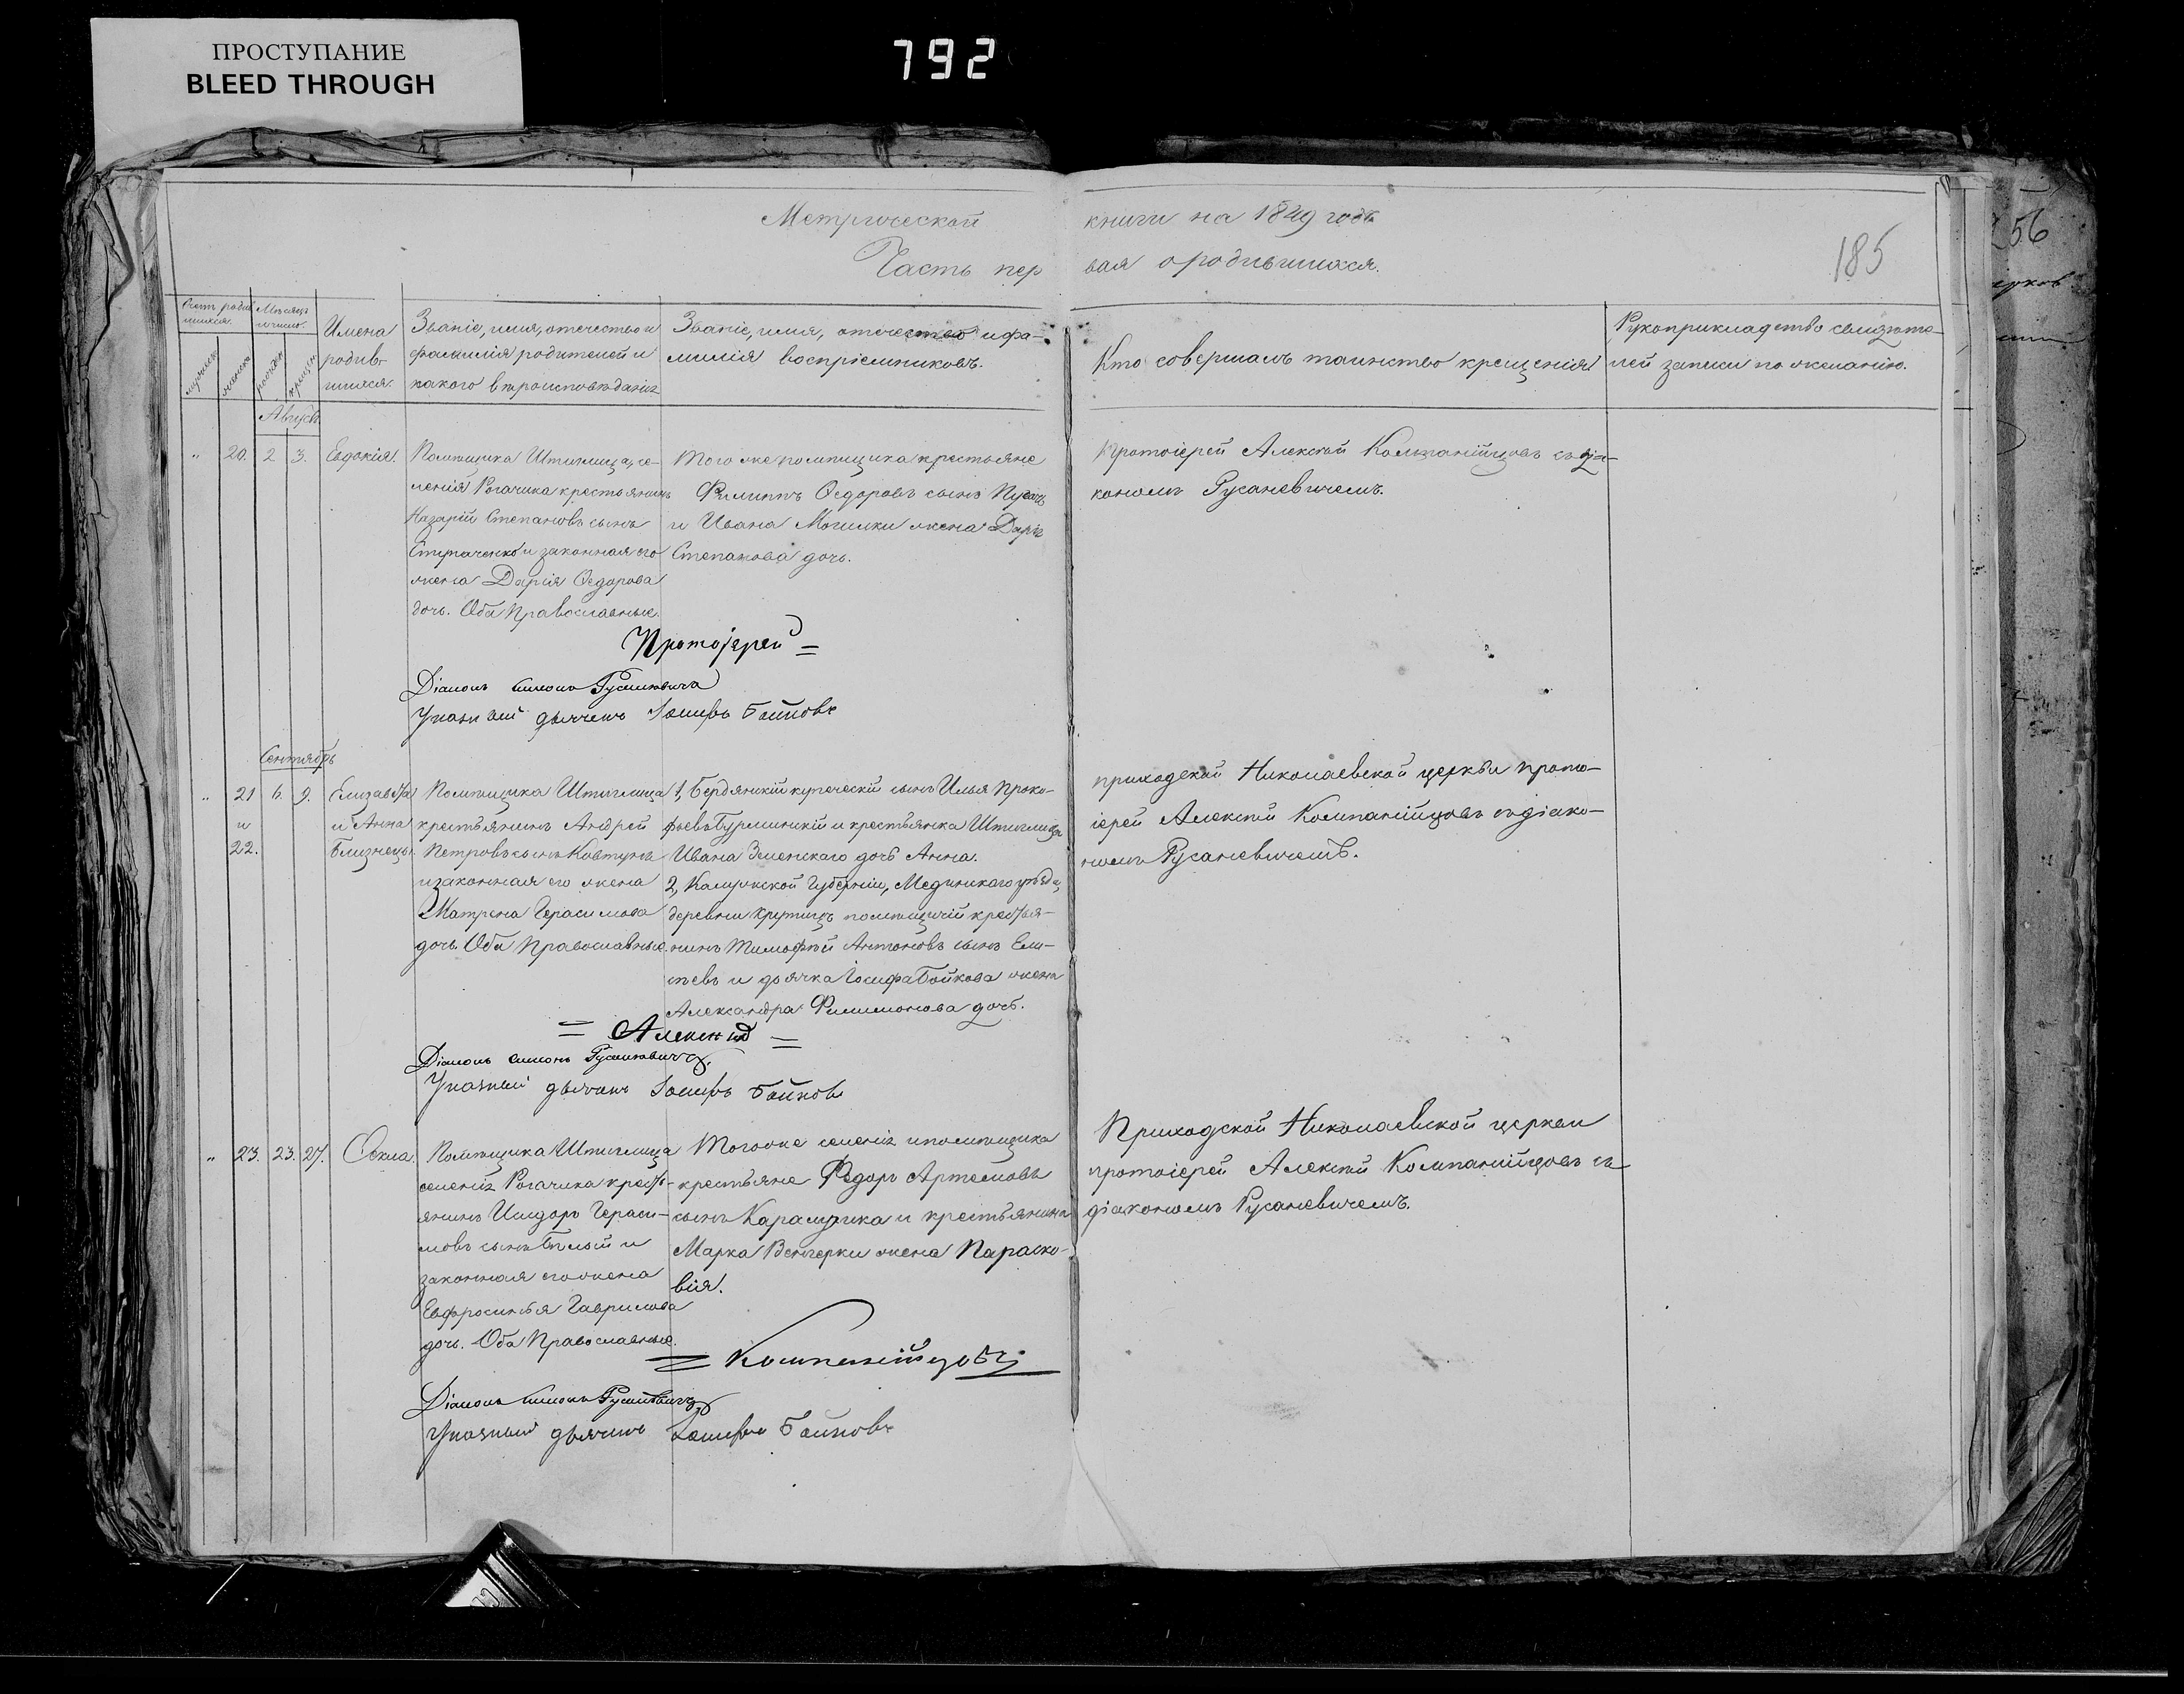 ПРОСТУПАНИЕ
BLEED THROUGH
792
Метрической книги на 1849 годъ
Часть первая о родившихся.
185
Счетъ родившихся.
Мѣсяцъ и число.
Имена родившихся.
Званіе, имя, отечество и
фамилія родителей и
какого вѣроисповѣданія
Званіе, имя, отечество и фа-
милія воспріемниковъ.
Кто совершалъ таинство крещенія
Рукоприкладство свидѣте-
лей записи по желанію.
Августъ
" 20. 2 3. Евдокія.
Помѣщика Штиглица, се-
ленія Рогачика крестьянинъ
Назарій Степановъ сынъ
и законная его
жена Дарія Ѳедорова
дочь. Оба Православные.
Того же помѣщика крестьяне
Филиппъ Ѳедоровъ сынъ
и Ивана Могилки жена Дарія
Степанова дочь.
Протоіерей Алексѣй Компанійцовъ съ діа-
кономъ Русаневичемъ.
Протоіерей =
Діаконъ Симонъ Русаневичъ
Указный дьячекъ Іосифъ Бойковъ
Сентябрь
" 21 и 22. 6. 9. Елизавета
и Анна
близнецы
Помѣщика Штиглица
крестьянинъ Андрей
Петровъ сынъ Ковтунъ
и законная его жена
Матрена Герасимова
дочь. Оба Православные.
1, Бердянскій купеческій сынъ Илья Проко-
фьевъ и крестьянка Штиглица
Ивана Зеленскаго дочь Анна.
2, Калужской Губерніи, Медынскаго уѣзда,
деревни помѣщичій крестья-
нинъ Тимофѣй Антоновъ сынъ Ели-
сѣевъ и дьячка Іосифа Бойкова жена
Александра Филимонова дочь.
приходской Николаевской церкви прото-
іерей Алексѣй Компанійцовъ съ діако-
номъ Русаневичемъ.
= Алексій =
Діаконъ Симонъ Русаневичъ.
Указный дьячекъ Іосифъ Бойковъ
" 23. 23. 27. Ѳекла.
Помѣщика Штиглица
селенія Рогачика кресть-
янинъ Исидоръ Гераси-
мовъ сынъ Бѣлый и
законная его жена
Евфросинія Гаврилова
дочь. Оба Православные.
Того же селенія и помѣщика
крестьяне Федоръ Артемовъ
сынъ и крестьянина
Марка Венгерки жена Параско-
вія.
Приходской Николаевской церкви
протоіерей Алексѣй Компанійцовъ съ
діакономъ Русаневичемъ.
= Компанійцовъ
Діаконъ Симонъ Русаневичъ
Указный дьячекъ Іосифъ Бойковъ
256